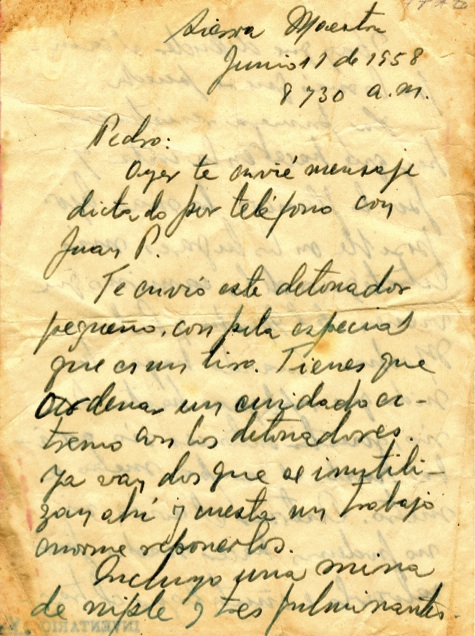 Sierra Maestra
Junio 11 de 1958
8 y 30 a.m.
Pedro:
Ayer te envié mensaje
dictado por teléfono con
Juan P.
Te envío este detonador
pequeño, con pila especial
que es un tiro. Tienes que
ordenar un cuidado ex-
tremo con los detonadores.
Ya van dos que se inutili-
zan ahí y cuesta un trabajo
enorme reponerlos.
Incluyo una mina
de niple y tres fulminantes.
INVENTARIO N